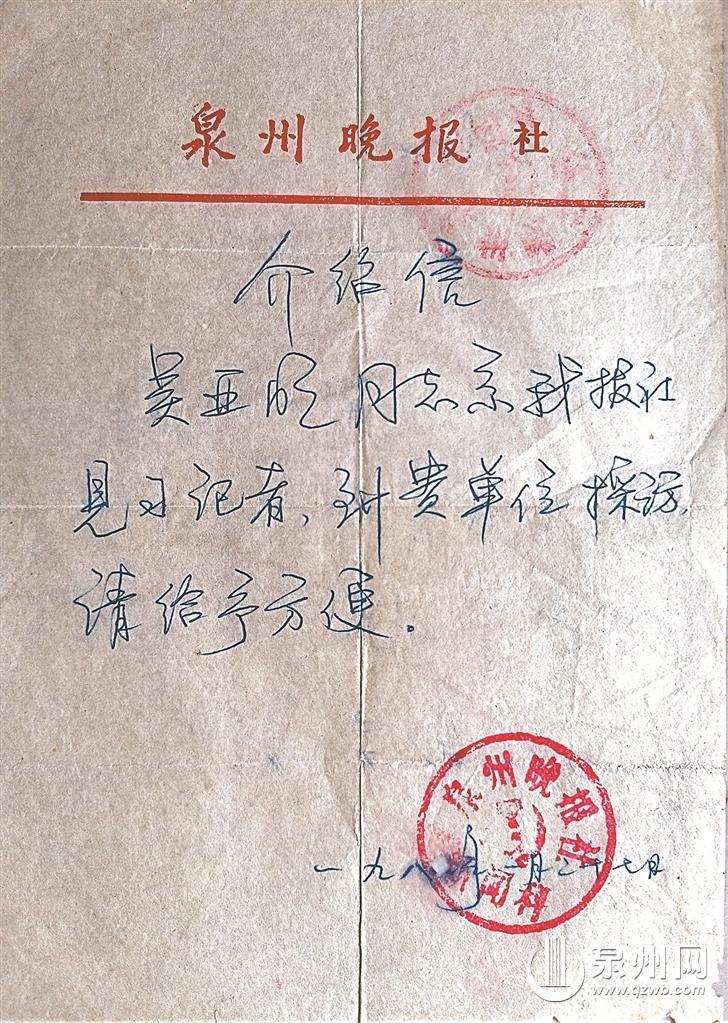 泉州晚报社
介绍信
吴亚明同志系我报社
见习记者,到贵单位採访,
请给予方便。
泉州晚报社
一九八 年一月二十七日
泉州网
www.qzwb.com